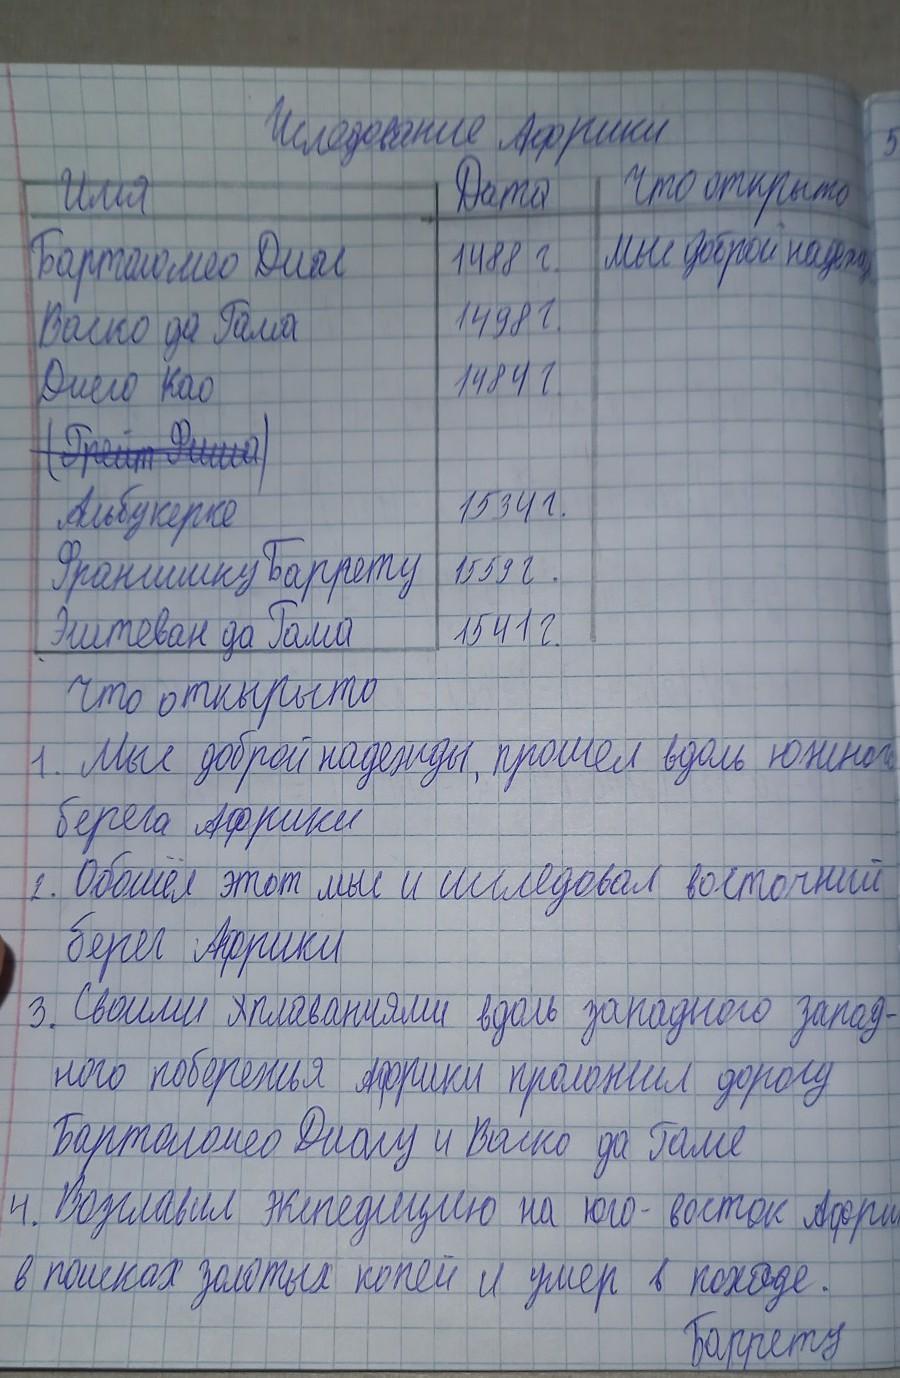 Иследование Африки
5
Имя Дата Что открыто
Бартоломео Диас 1488 г. Мыс доброй надежды
Васко да Гама 1498 г.
Диего Као 1484 г.
Альбукерке 1534 г.
Франшишку Баррету 1559 г.
Эштеван да Гама 1541 г.
Что открырыто
1. Мыс доброй надежды, прошел вдоль южного
берега Африки
2. Обошёл этот мыс и исследовал восточний
берег Африки
3. Своими плаваниями вдоль западного запад-
ного побережья Африки проложил дорогу
Бартоломео Диасу и Васко да Гаме
4. Возглавил экспедицию на юго-восток Афри
в поисках золотых копей и умер в походе.
Баррету